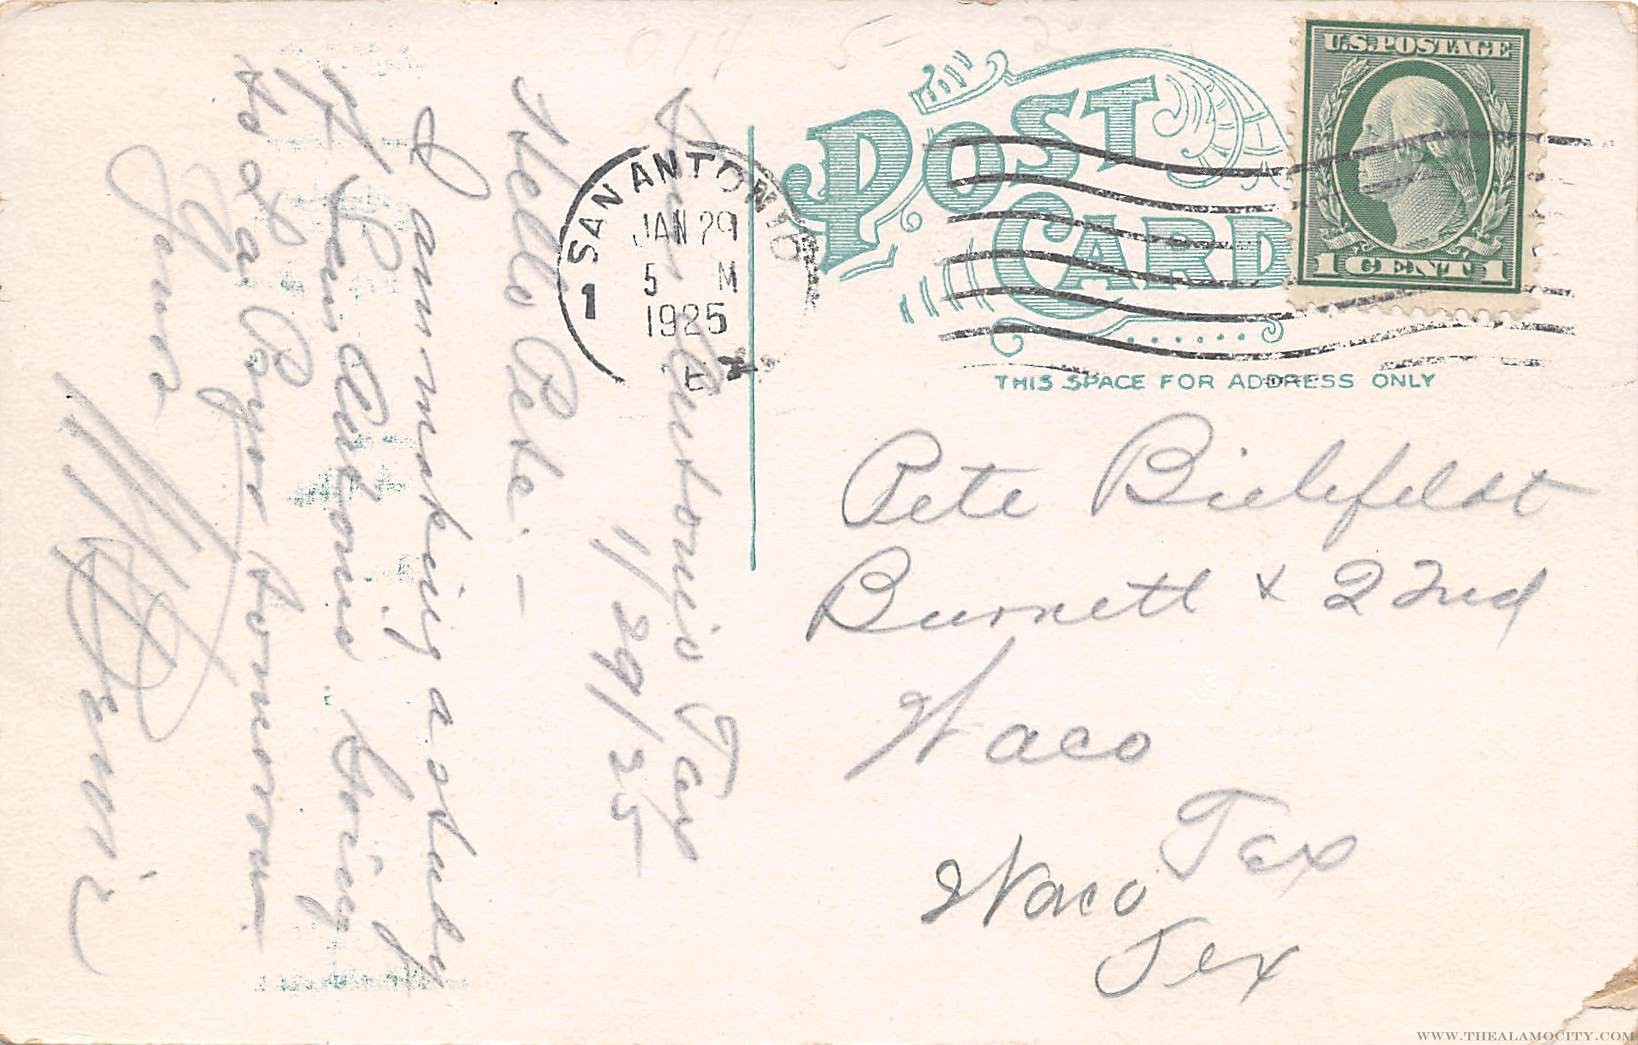 San Antonio Tex
1/29/25
Hello Pete: -
I am making a study
of San Antonio. Going
to La Pryor tomorrow.
Yours
POST CARD
THIS SPACE FOR ADDRESS ONLY
U.S. POSTAGE
1 CENT 1
SAN ANTONIO
JAN 29
5 M
1925
1
TEX
Pete Bielefeldt
Burnett & 22nd
Waco
Tex
Waco
Tex
WWW.THEALAMOCITY.COM